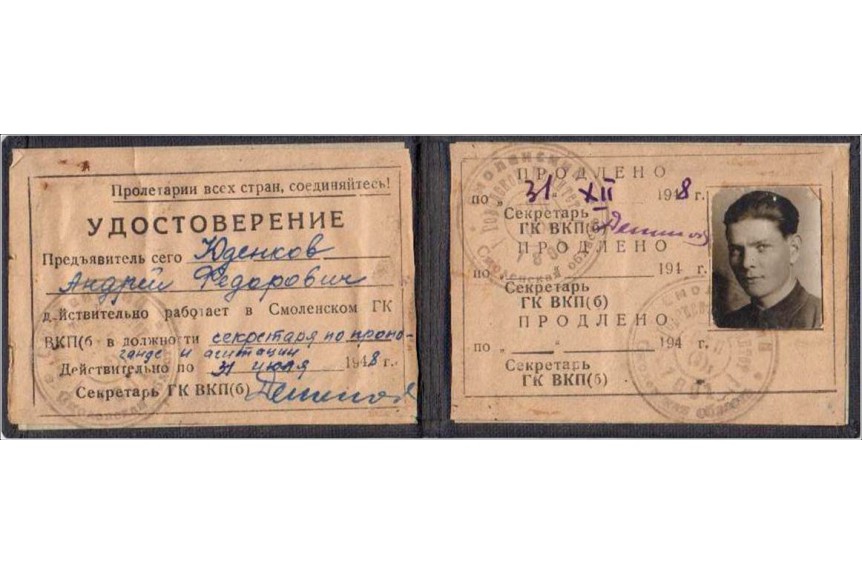 Пролетарии всех стран, соединяйтесь!
УДОСТОВЕРЕНИЕ
Предъявитель сего Юденков
Андрей Федорович
действительно работает в Смоленском ГК
ВКП(б в должности секретаря по пропо-
ганде и агитации
Действительно по 31 июля 1948 г.
Секретарь ГК ВКП(б)
ПРОДЛЕНО
по „31" XII 1948 г.
Секретарь
ГК ВКП(б)
ПРОДЛЕНО
по „ " 194 г.
Секретарь
ГК ВКП(б)
ПРОДЛЕНО
по „ " 194 г.
Секретарь
ГК ВКП(б)